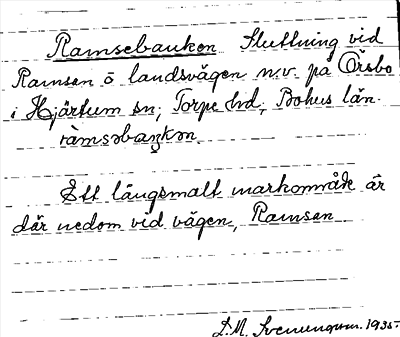 Ramsebauken Sluttning vid
Ramsen ö landsvägen n.v. på Örsbo
i Hjärtum sn, Torpe hd, Bohus län.
ràmsəbaŋkən.
Ett långsmalt markområde är
där nedom vid vägen, Ramsen
D.M. Svenungsson. 1935.